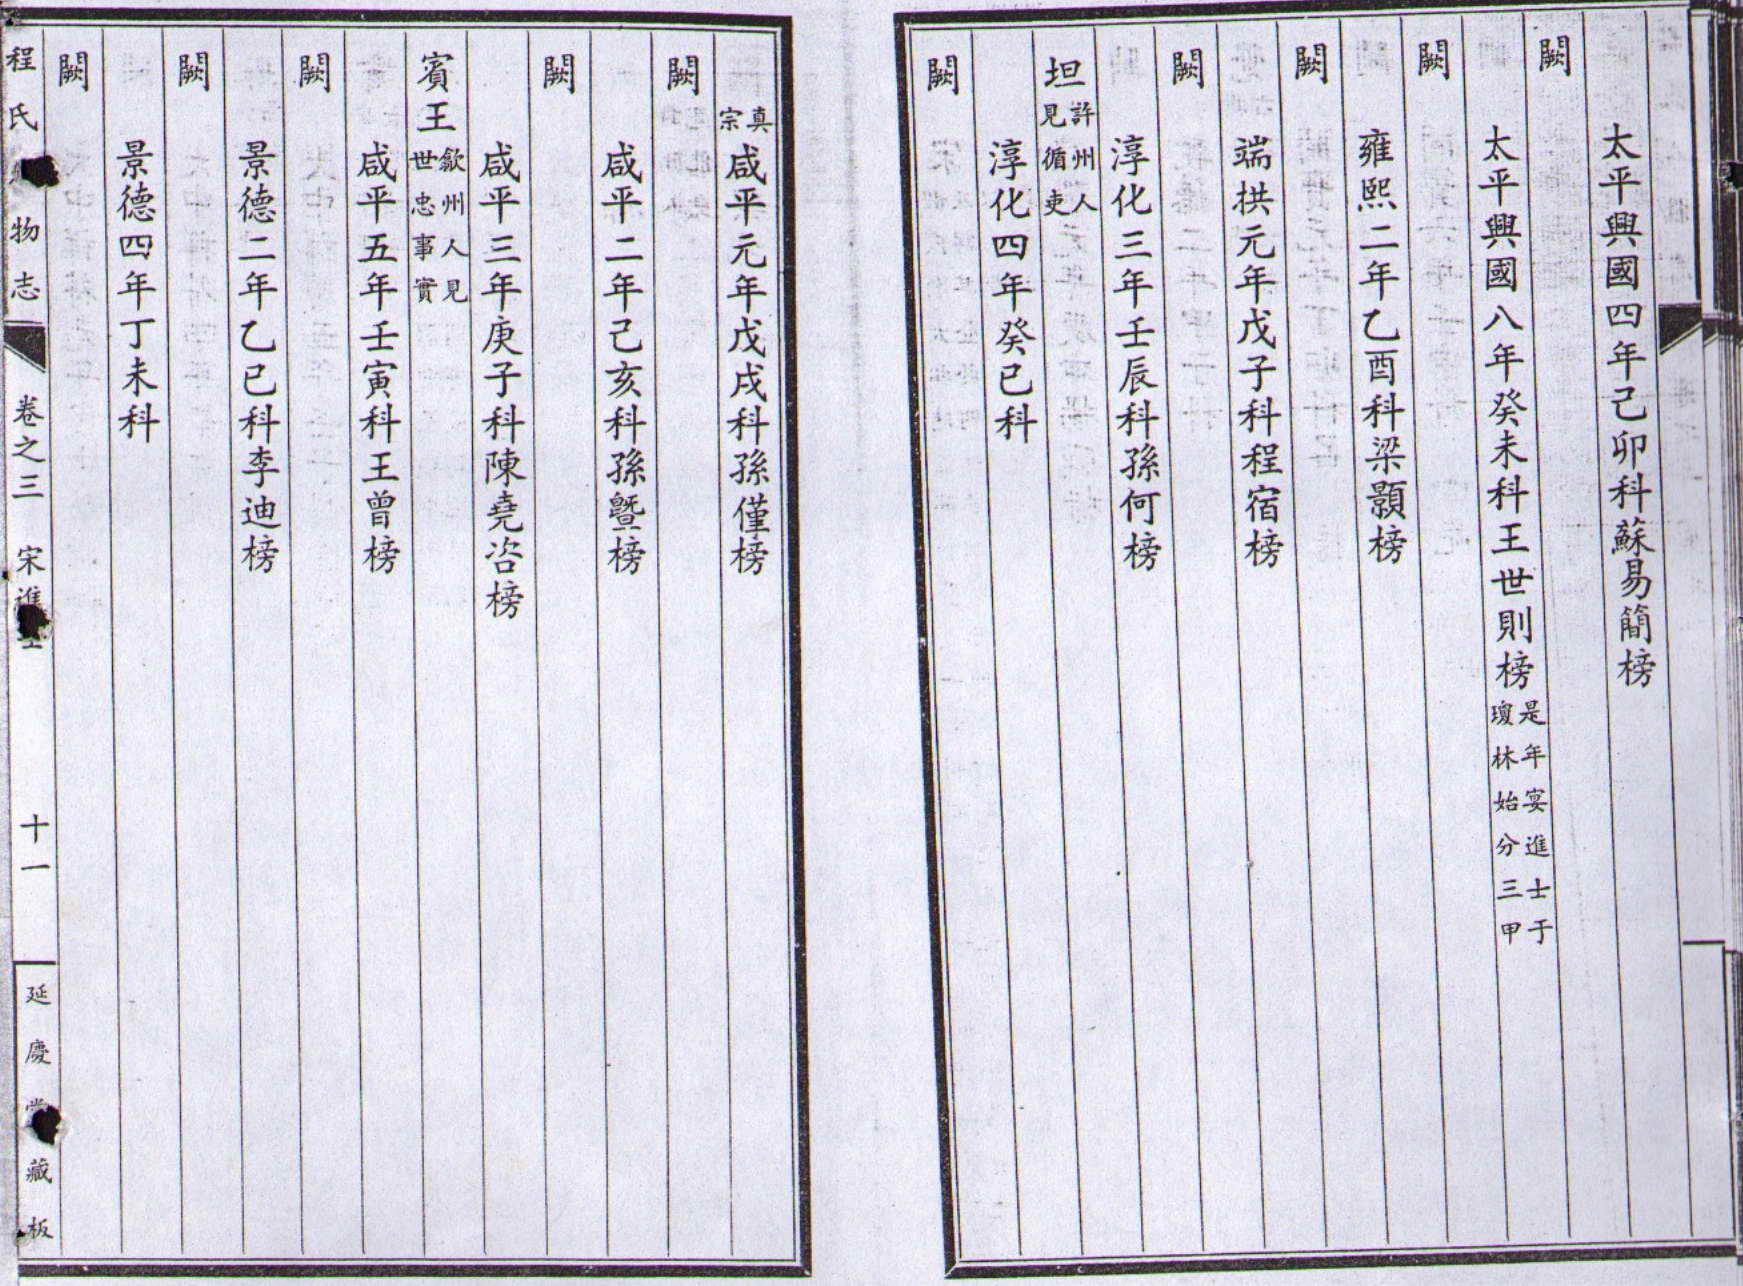 太平興國四年己卯科蘇易簡榜
闕
太平興國八年癸未科王世則榜是年宴進士于
瓊林始分三甲
闕
雍熙二年乙酉科梁顥榜
闕
端拱元年戊子科程宿榜
闕
淳化三年壬辰科孫何榜
坦許州人
見循吏
淳化四年癸巳科
闕
真宗
咸平元年戊戌科孫僅榜
闕
咸平二年己亥科孫暨榜
闕
咸平三年庚子科陳堯咨榜
賓王歙州人見
世忠事實
咸平五年壬寅科王曾榜
闕
景德二年乙巳科李迪榜
闕
景德四年丁未科
闕
程氏 物志 卷之三 宋進士 十一 延慶堂藏板